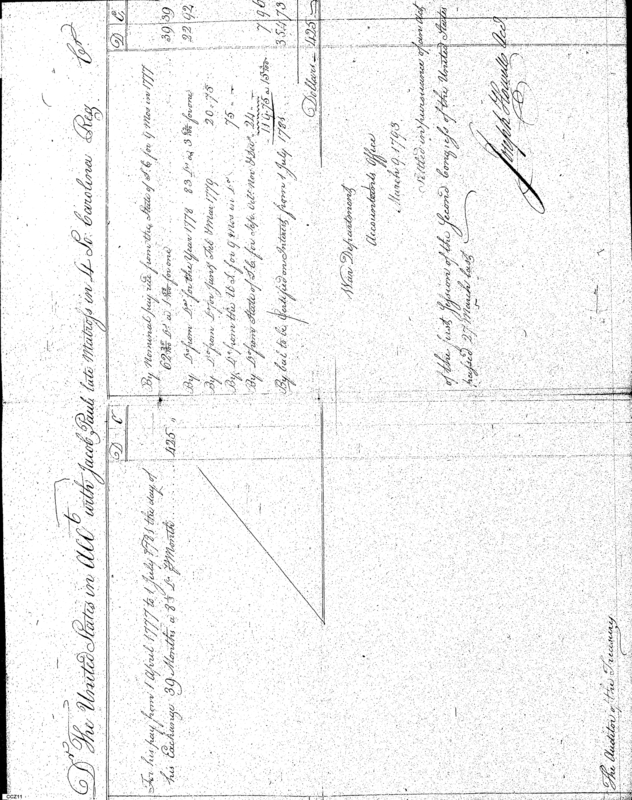 Dr The United States in Acct with Jacob Paul late Matross in 4 So. Carolina Reg Cr
D C
For his pay from 1 April 1777 to 1 July 1781 the day of
his Exchange 39 Months a 8⅓ Ds ⅌ Month 425 "
D C
By Nominal pay recd from the State of S C for 9 Mos in 1777
62 Ds a for one 39 39
By Do from Do for the Year 1778 83 Ds a 3 for one 22 92
By Do from Do for Jany Feb & Mar 1779 20.75
By Do from the U S for 9 Mos in Do 75 —
By Do from State of S C for Sepr Octr Nov 24 —
119.75 a for one 7 96
By bal to be Certified on Interest from 1 July 1781 354 73
Dollars — 425 —
War Department
Accountants Office
March 9. 1793
Settled in pursuance of an Act
of the first Session of the Second Congress of the United States
passed 27 March last
Joseph Howell
The Auditor of the Treasury
CCZ11